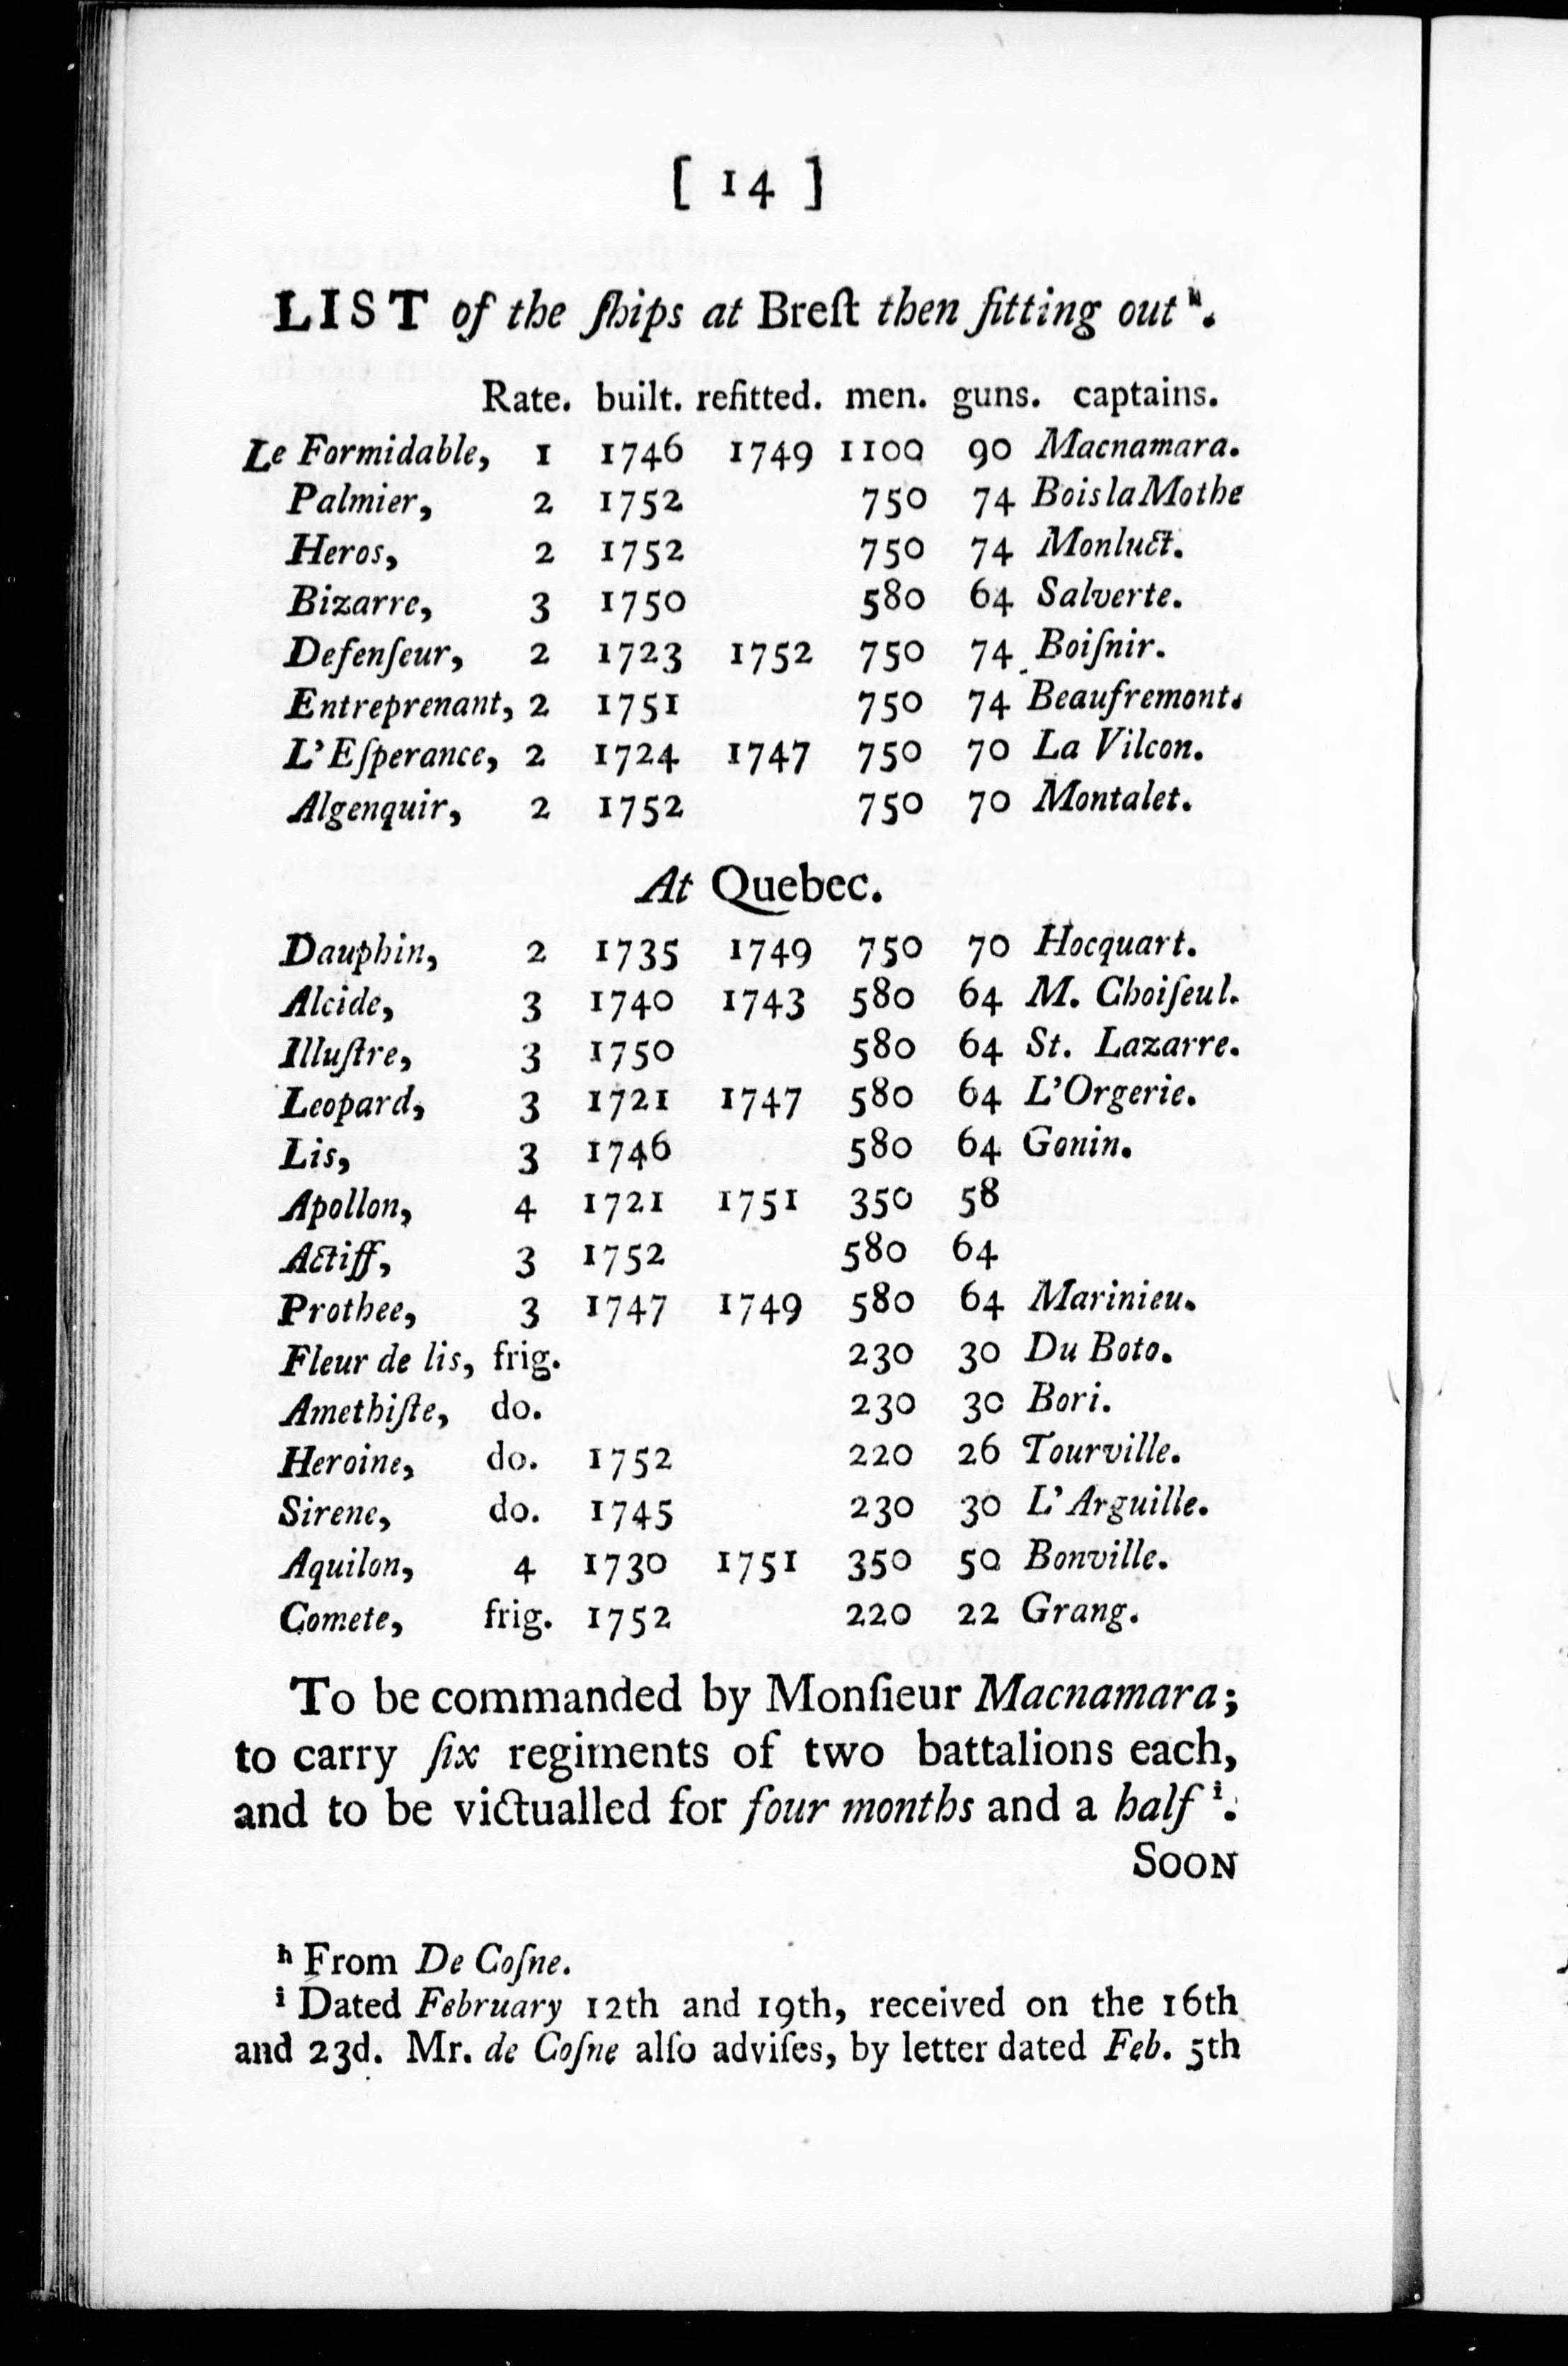 [ 14 ]
LIST of the ſhips at Breſt then fitting out ʰ.
Rate. built. refitted. men. guns. captains.
Le Formidable, 1 1746 1749 1100 90 Macnamara.
Palmier, 2 1752 750 74 Bois la Mothe
Heros, 2 1752 750 74 Monluct.
Bizarre, 3 1750 580 64 Salverte.
Defenſeur, 2 1723 1752 750 74 Boiſnir.
Entreprenant, 2 1751 750 74 Beaufremont.
L'Eſperance, 2 1724 1747 750 70 La Vilcon.
Algenquir, 2 1752 750 70 Montalet.
At Quebec.
Dauphin, 2 1735 1749 750 70 Hocquart.
Alcide, 3 1740 1743 580 64 M. Choiſeul.
Illuſtre, 3 1750 580 64 St. Lazarre.
Leopard, 3 1721 1747 580 64 L'Orgerie.
Lis, 3 1746 580 64 Gonin.
Apollon, 4 1721 1751 350 58
Actiff, 3 1752 580 64
Prothee, 3 1747 1749 580 64 Marinieu.
Fleur de lis, frig. 230 30 Du Boto.
Amethiſte, do. 230 30 Bori.
Heroine, do. 1752 220 26 Tourville.
Sirene, do. 1745 230 30 L'Arguille.
Aquilon, 4 1730 1751 350 50 Bonville.
Comete, frig. 1752 220 22 Grang.
To be commanded by Monſieur Macnamara;
to carry ſix regiments of two battalions each,
and to be victualled for four months and a half ⁱ.
SOON
ʰ From De Coſne.
ⁱ Dated February 12th and 19th, received on the 16th
and 23d. Mr. de Coſne alſo adviſes, by letter dated Feb. 5th